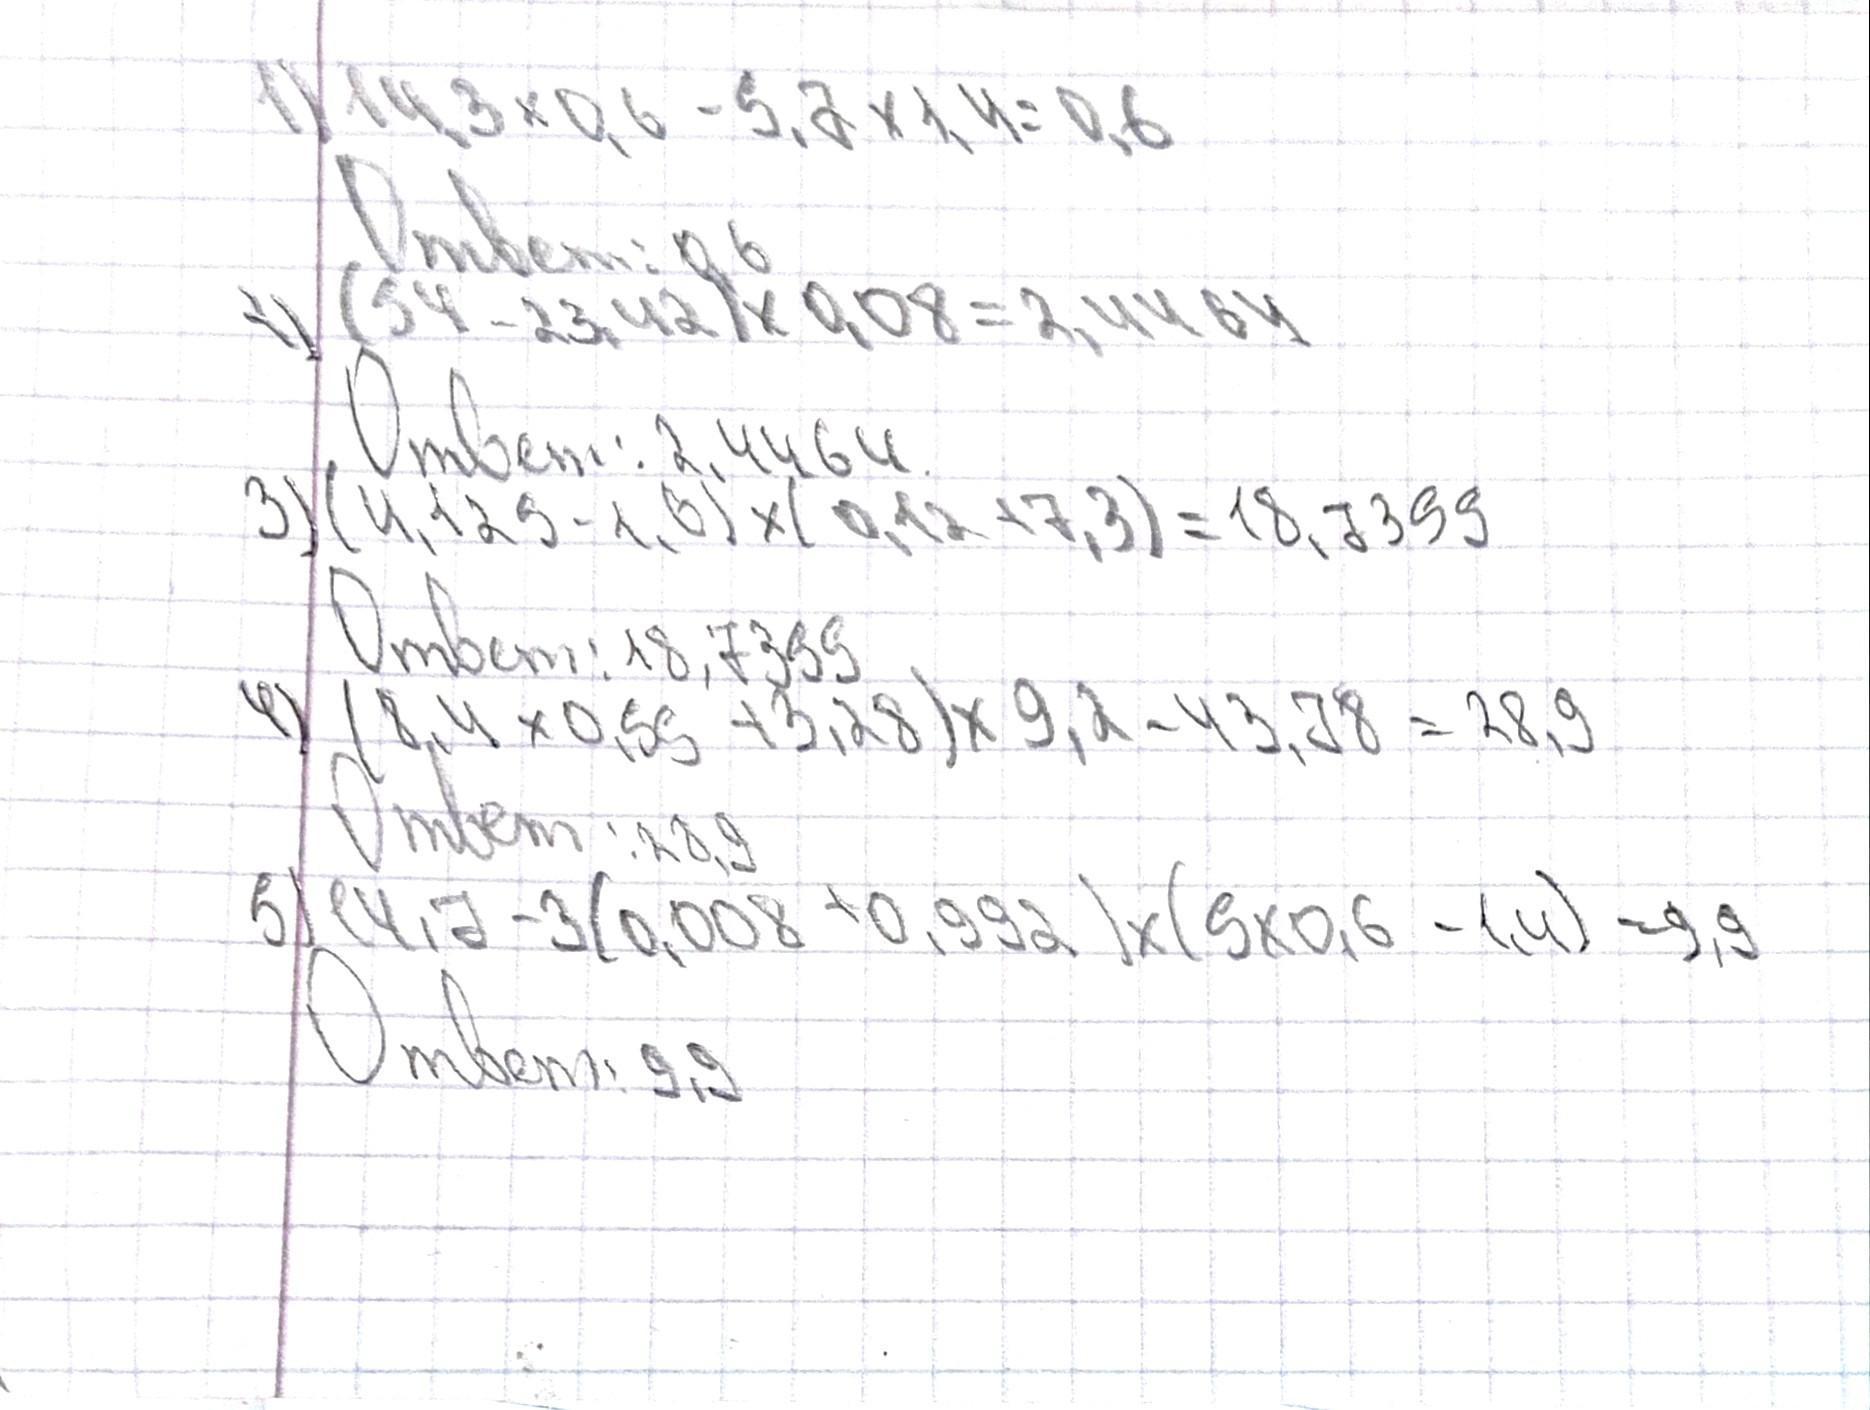 1) 14,3×0,6-5,7×1,4=0,6
Ответ: 0,6
2) (54-23,42)×0,08=2,4464
Ответ: 2,4464.
3) (4,125-1,6)×(0,12+7,3)=18,7355
Ответ: 18,7355
4) (8,4×0,55+3,28)×9,2-43,78=28,9
Ответ: 28,9
5) 14,7-3(0,008+0,992)×(5×0,6-1,4)=9,9
Ответ: 9,9